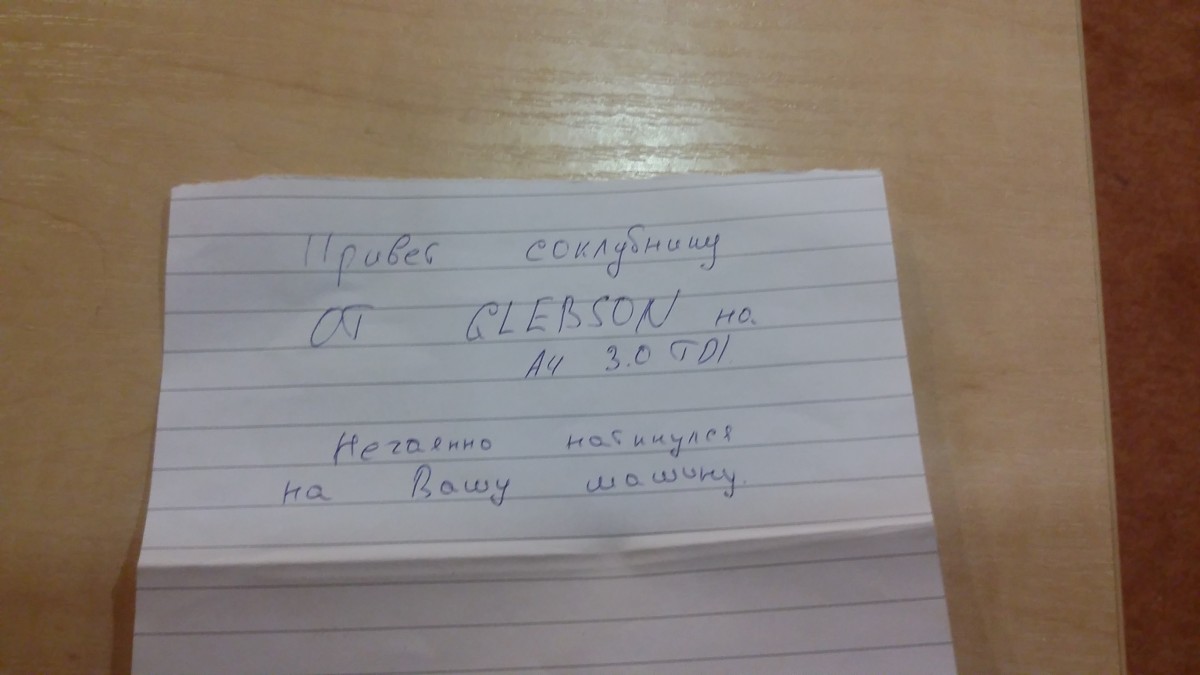 Привет соклубнику
от GLEBSON на
A4 3.0 TDI
Нечаянно наткнулся
на Вашу машину.